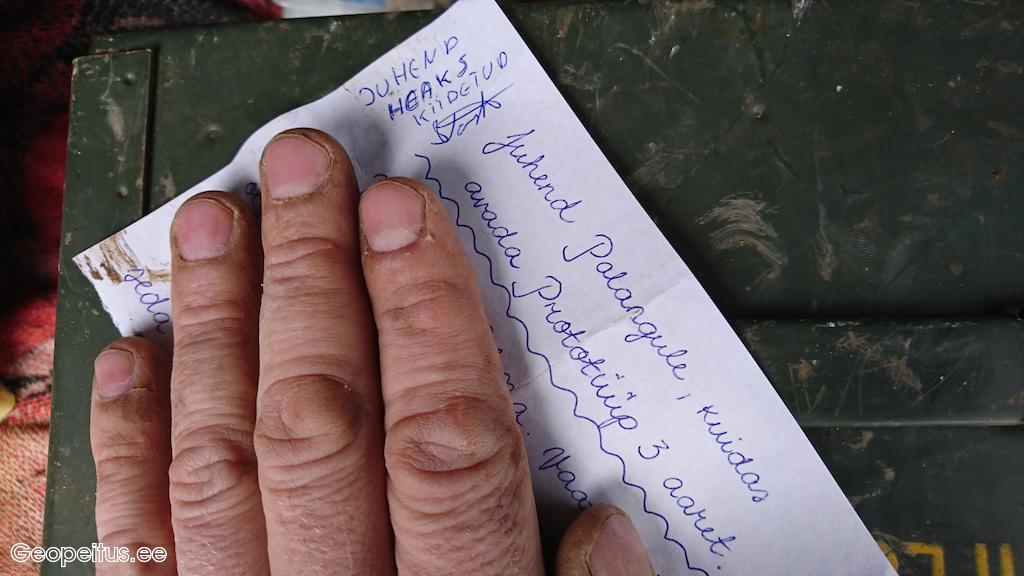 JUHEND
HEAKS
KIIDETUD
Juhend Palangule, kuidas
avada Prototüüp 3 aaret.
Vaa
seda
Geopeitus.ee